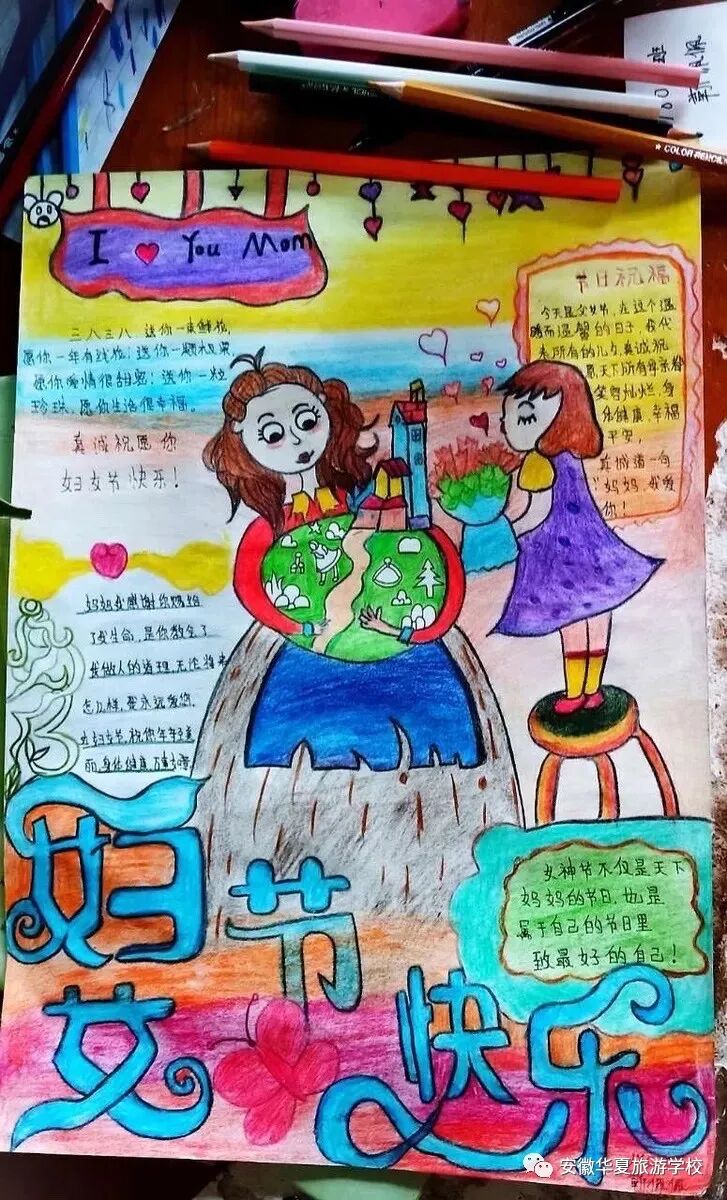 I ♥ You Mom
三八三八送你一束鲜花,
愿你一年有钱花;送你一颗水果,
愿你爱情很甜蜜;送你一粒
珍珠,愿你生活很幸福。
真诚祝愿你
妇女节快乐!
节日祝福
今天是妇女节,在这个温
暖而温馨的日子,我代
表所有的儿女真诚祝
愿天下所有母亲
笑容灿烂,身
体健康,幸福
平安,
真诚道一句
“妈妈,我爱
你!
妈妈我感谢你赐给
了我生命,是你教会了
我做人的道理,无论将来
怎么样,我永远爱您,
妇女节,祝你年轻美
丽,身体健康,万事
女神节不仅是天下
妈妈的节日,也是
属于自己的节日里
致最好的自己!
妇女节快乐
COLOR PENCIL
班
安徽华夏旅游学校